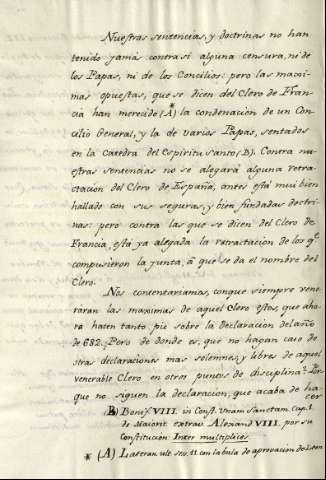 Nuestras sentencias, y doctrinas no han
tenido jamas contra si alguna censura, ni de
los Papas, ni de los Concilios: pero las maxi-
mas opuestas, que se dicen del Clero de Fran-
cia han merecido (A) la condenacion de un Con-
cilio General, y la de varios Papas, sentados
en la Catedra del Espiritu Santo (B). Contra nu-
estras sentencias no se alegará alguna retra-
ctacion del Clero de España, antes está mui bien
hallado con sus seguras, y bien fundadas doctri-
nas: pero contra las que se dicen del Clero de
Francia, está ya alegada la retractacion de los q.e
compusieron la junta, á que se da el nombre del
Clero.
Nos contentariamos, conque siempre vene-
raran las maximas de aquel Clero estos, que aho-
ra hacen tanto pie sobre la declaracion del año
de 682. Pero de donde es, que no hagan caso de
otras declaraciones mas solemnes, y libres de aquel
venerable Clero en otros puntos de disciplina? Por
que no siguen la declaracion, que acaba de ha
cer
B) Bonif. VIII. in Const. Unam Sanctam. Cap. 1.
de Maiorit. extrav. Alexand VIII. por su
Constitucion: Inter multiplices
* (A) Lateran. ult. ses. 11. con la bula de aprovacion de Leon